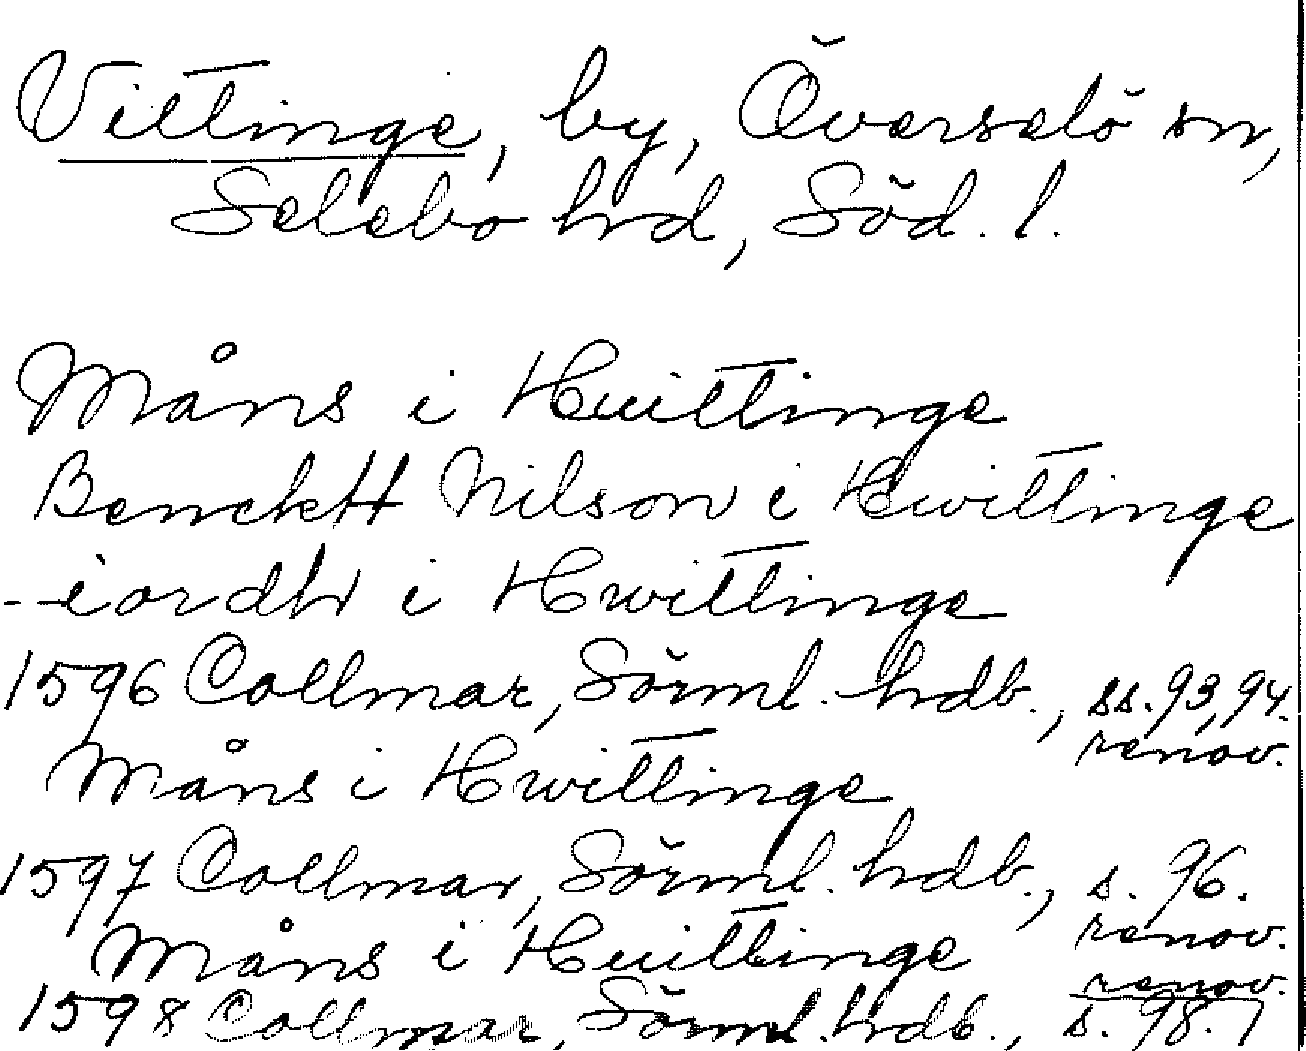 Vittinge, by, Överselö sn,
Selebo hrd, Söd. l.
Måns i Huittinge
Benektt Nilson i Hwittinge
--iordh i Hwittinge
1596 Collmar, Sörml. hdb., ss. 93, 94.
renov.
Måns i Hwittinge
1597 Collmar, Sörml. hdb., s. 96.
renov.
Måns i Huittinge
renov.
1598 Collmar, Sörml. hdb., s. 98.